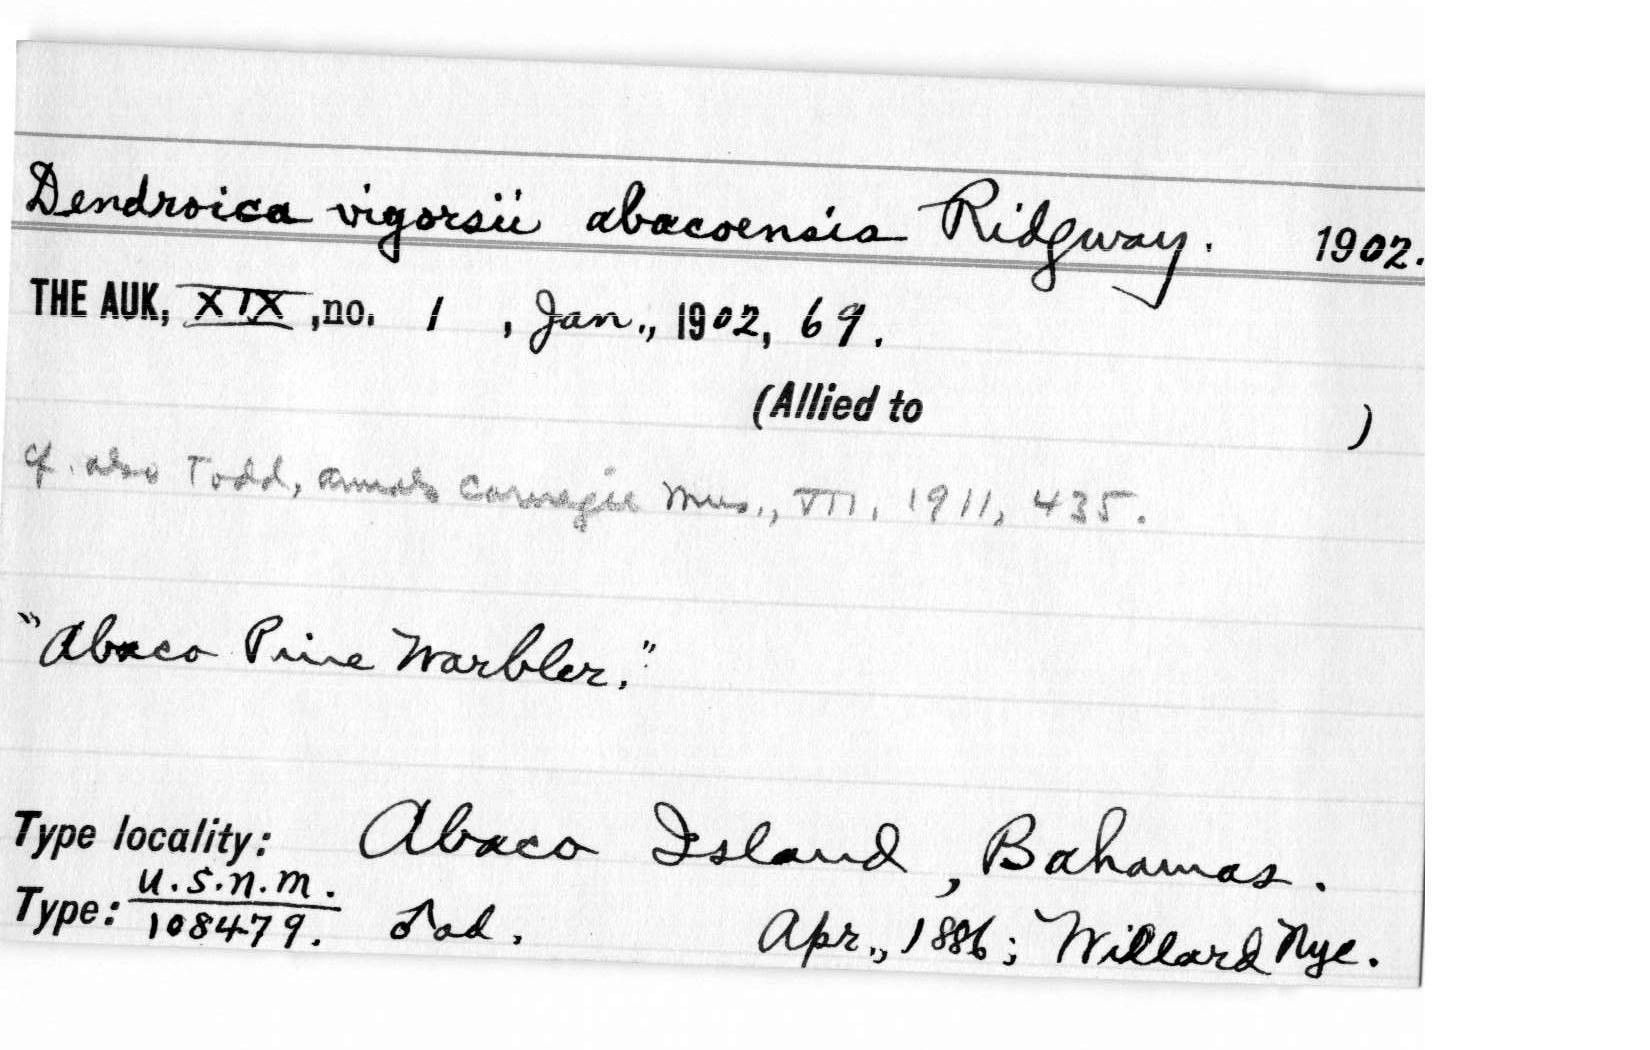 Dendroica vigorsii abacoensis Ridgway. 1902.
THE AUK, XIX, no. 1, Jan., 1902, 69.
(Allied to )
cf. also Todd, Annals Carnegie Mus., VII, 1911, 435.
"Abaco Pine Warbler."
Type locality: Abaco Island, Bahamas.
Type: U.S.N.M. 108479. ♂ ad. Apr., 1886; Willard Nye.